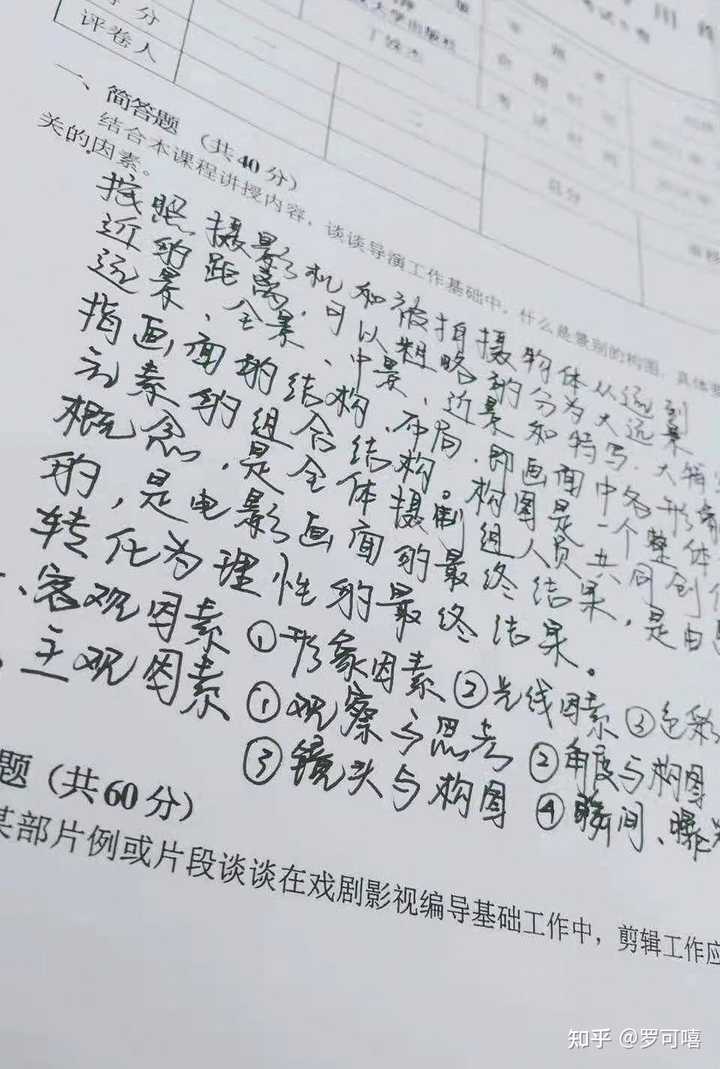 大学出版社
评卷人
一
二
总分
一、简答题（共40分）
结合本课程讲授内容，谈谈导演工作基础中，什么是景别的构图，具体
关的因素。
按照摄影机和被拍摄物体从远到
近的距离，可以粗略的分为大远景
远景、全景、中景、近景和特写、大特
指画面的结构、布局，即画面中各形
元素的组合结构。构图是一个整体
概念，是全体摄制组人员共同创
的，是电影画面的最终结果，是由
转化为理性的最终结果。
、客观因素 ①形象因素 ②光线因素 ③色彩
、主观因素 ①观察与思考 ②角度与构图
③镜头与构图 ④瞬间、曝光
题（共60分）
某部片例或片段谈谈在戏剧影视编导基础工作中，剪辑工作应
知乎 @罗可嘻